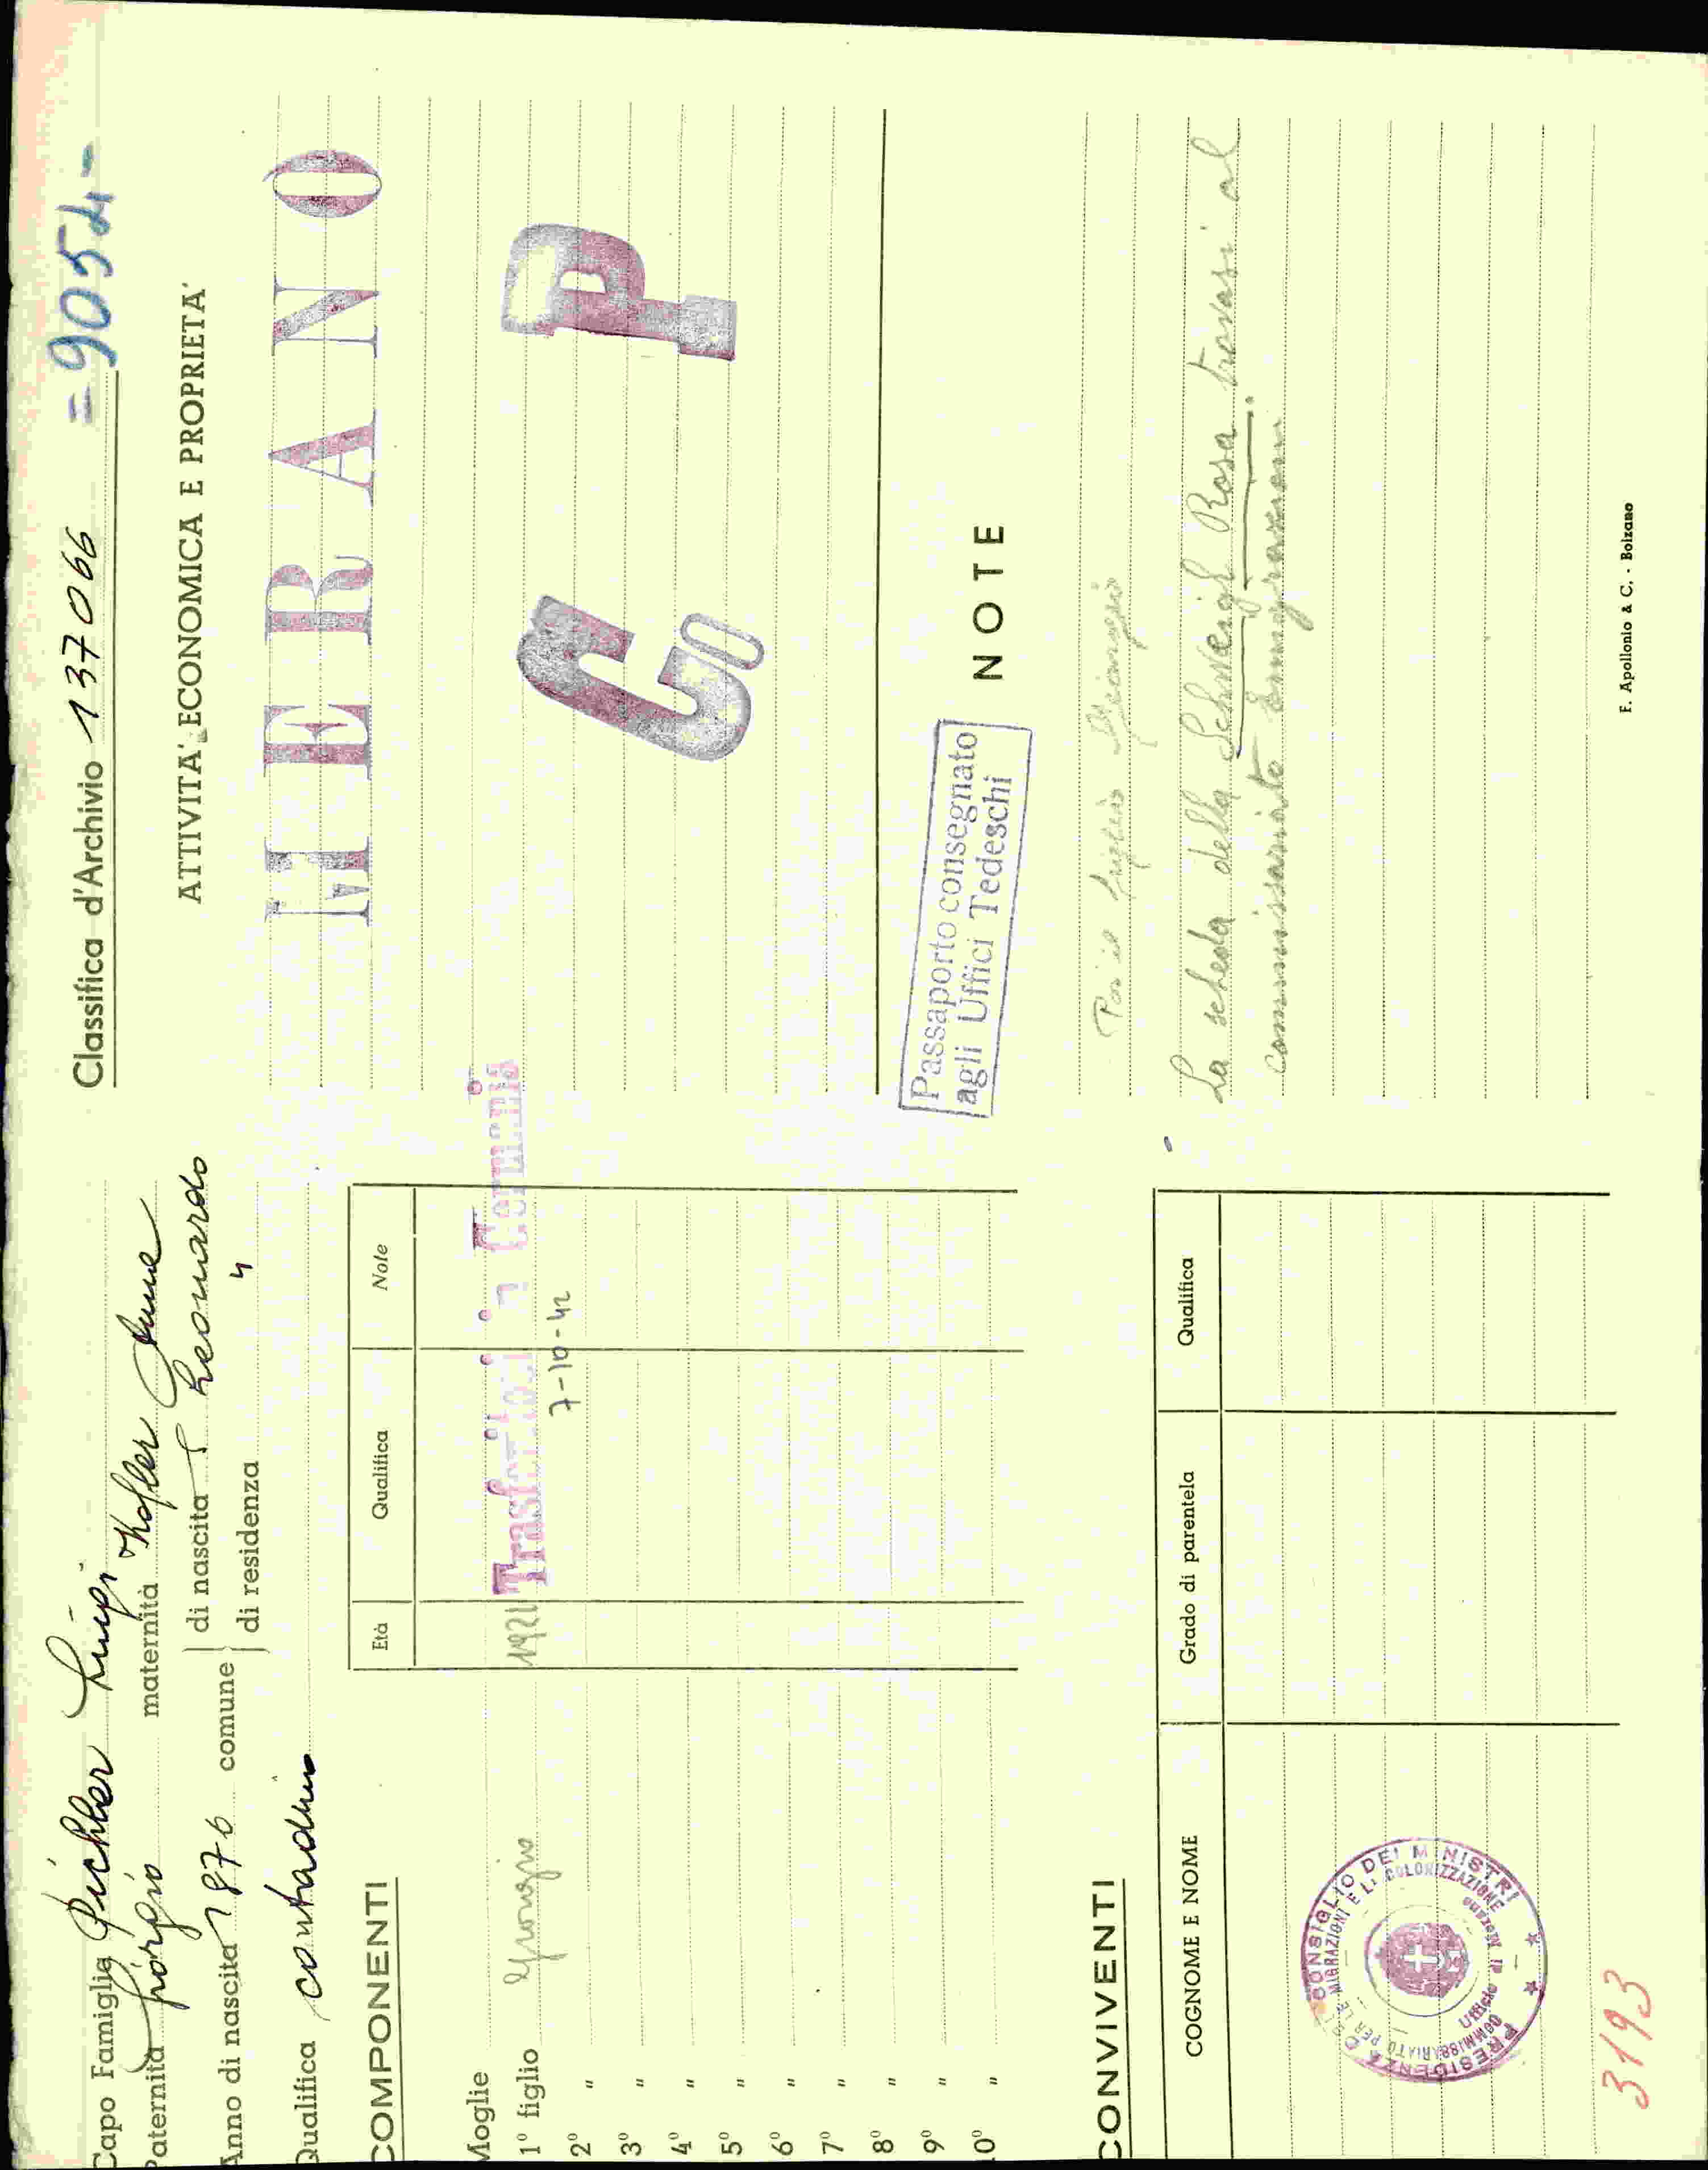 Capo Famiglia Pichler Luigi
Paternità Giorgio maternità Kofler Anna
Anno di nascita 1876 comune di nascita S. Leonardo
di residenza "
Qualifica contadino
COMPONENTI
Età Qualifica Note
Moglie
1º figlio Giorgio 1921 Trasferitosi in Germania
2º " 7-10-42
3º "
4º "
5º "
6º "
7º "
8º "
9º "
10º "
CONVIVENTI
COGNOME E NOME Grado di parentela Qualifica
PRESIDENZA CONSIGLIO DEI MINISTRI
COMMISSARIATO PER LE MIGRAZIONI E LA COLONIZZAZIONE
Ufficio di Merano
3193
Classifica d'Archivio 137066 = 9054 -
ATTIVITA' ECONOMICA E PROPRIETA'
MERANO
Co P.
NOTE
Passaporto consegnato
agli Uffici Tedeschi
Per il figlio Giorgio
La scheda della Schweigl Rosa trovasi al
Commissariato Emigrazioni.
F. Apollonio & C. - Bolzano